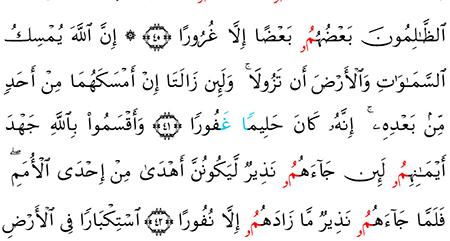 ٱلظَّـٰلِمُونَ بَعْضُهُمُۥ بَعْضًا إِلَّا غُرُورًا ﴿٤٠﴾ ۞ إِنَّ ٱللَّهَ يُمْسِكُ
ٱلسَّمَـٰوَٰتِ وَٱلْأَرْضَ أَن تَزُولَا ۚ وَلَئِن زَالَتَا إِنْ أَمْسَكَهُمَا مِنْ أَحَدٍ
مِّنۢ بَعْدِهِۦٓ ۚ إِنَّهُۥ كَانَ حَلِيمًا غَفُورًا ﴿٤١﴾ وَأَقْسَمُوا۟ بِٱللَّهِ جَهْدَ
أَيْمَـٰنِهِمُۥ لَئِن جَآءَهُمُۥ نَذِيرٌ لَّيَكُونُنَّ أَهْدَىٰ مِنْ إِحْدَى ٱلْأُمَمِ ۖ
فَلَمَّا جَآءَهُمُۥ نَذِيرٌ مَّا زَادَهُمُۥ إِلَّا نُفُورًا ﴿٤٢﴾ ٱسْتِكْبَارًا فِى ٱلْأَرْضِ